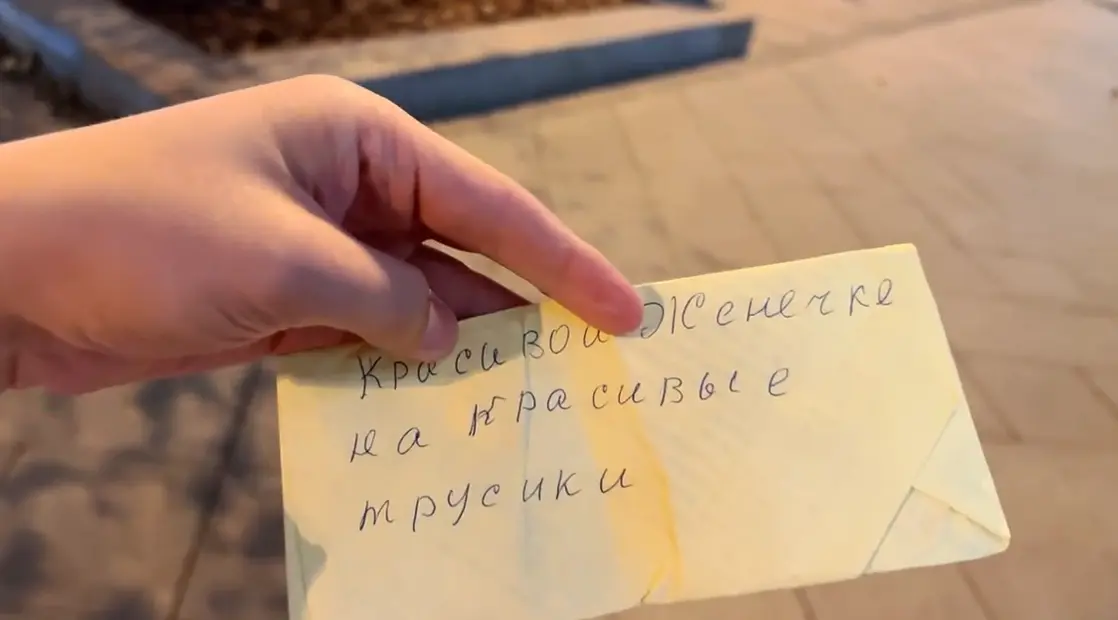 Красивой Женечке
на красивые
трусики